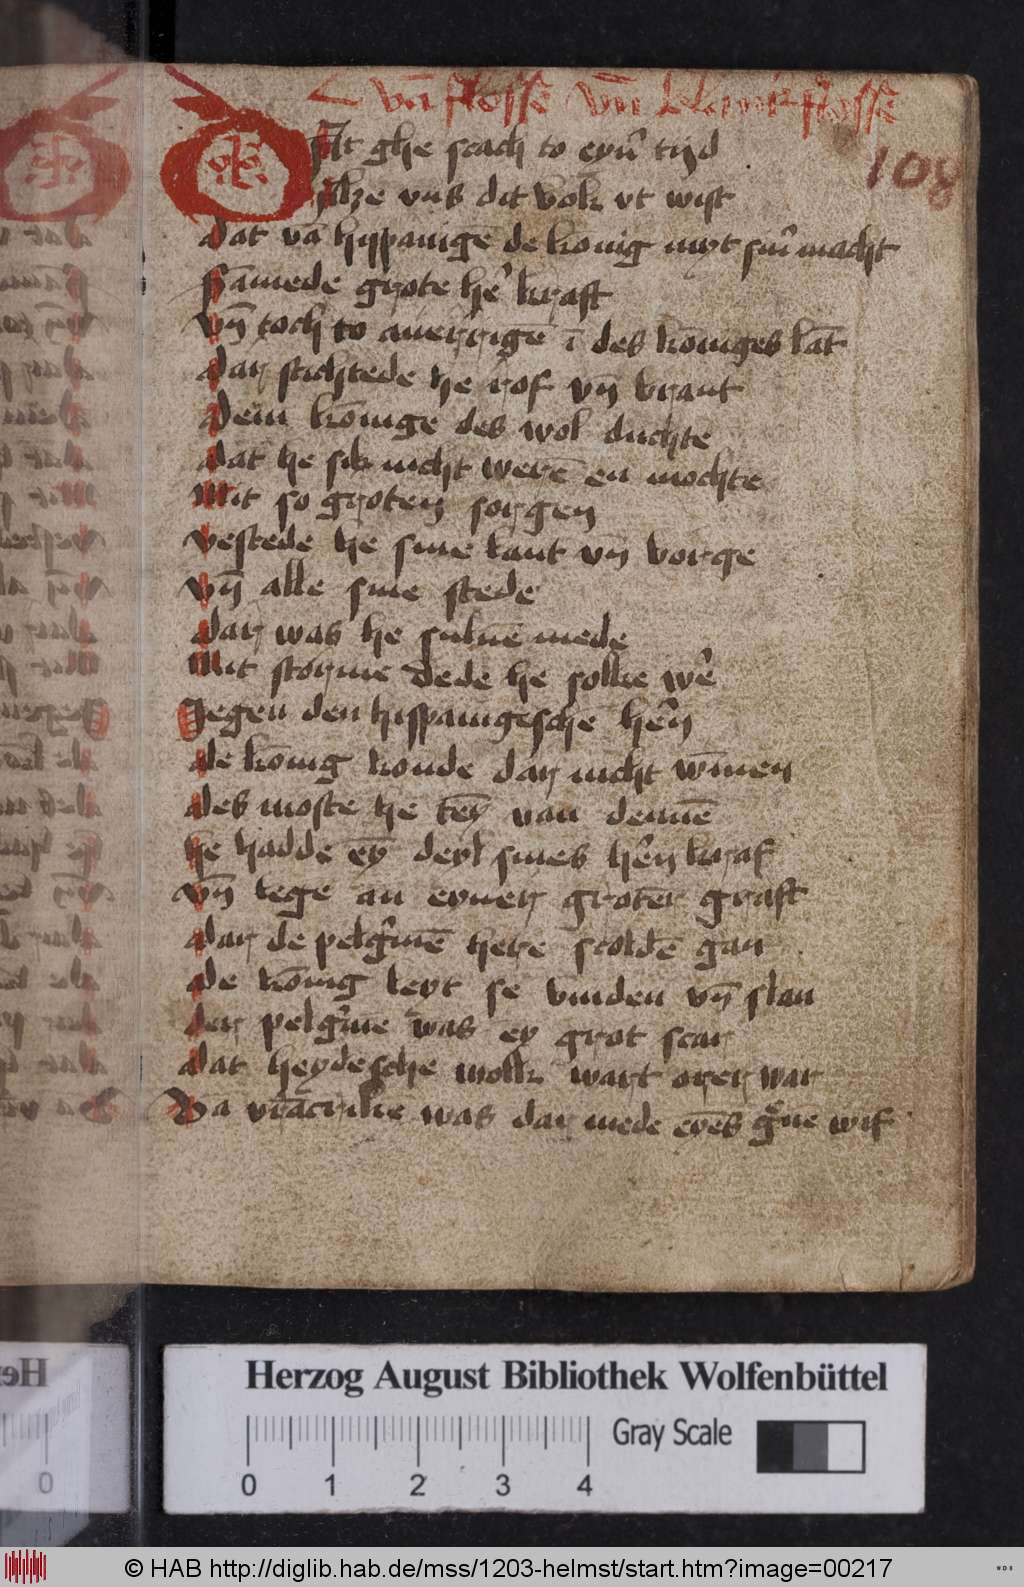 vn̄ flosse vn̄ blankflosse
108
At ghe scach to eyn̄ tijd
Alze vns dit bok vt wist
dat vā hispanigē de konig myt sin̄ macht
Sāmede grote her̄ kraft
vn̄ toch to auerrigē ī des koniges lāt
dar stichtede he rof vn̄ brant
dem konige des wol duchte
dat he sik nicht werē en mochte
Mit so groten sorgen
vestede he sine lant vn̄ borge
vn̄ alle sine stede
dar was he suluē mede
Mit storme dede he solke wer̄
Jegen den hispanigeschē hern̄
de konig konde dar nicht wīnen
des moste he tēy van dennē
he hadde ey̅ deyl sines hern̄ kraf
vn̄ lege an eyner groter graft
dar de pelgrīmē here scoldē gan
de konig leyt se vinden vn̄ slan
der pelgrīme was ey grot scar
dat heydesche wolk wart orer war
Da vrācrike was dar mede eyēs grūe wif
Herzog August Bibliothek Wolfenbüttel
0 1 2 3 4
Gray Scale
© HAB http://diglib.hab.de/mss/1203-helmst/start.htm?image=00217